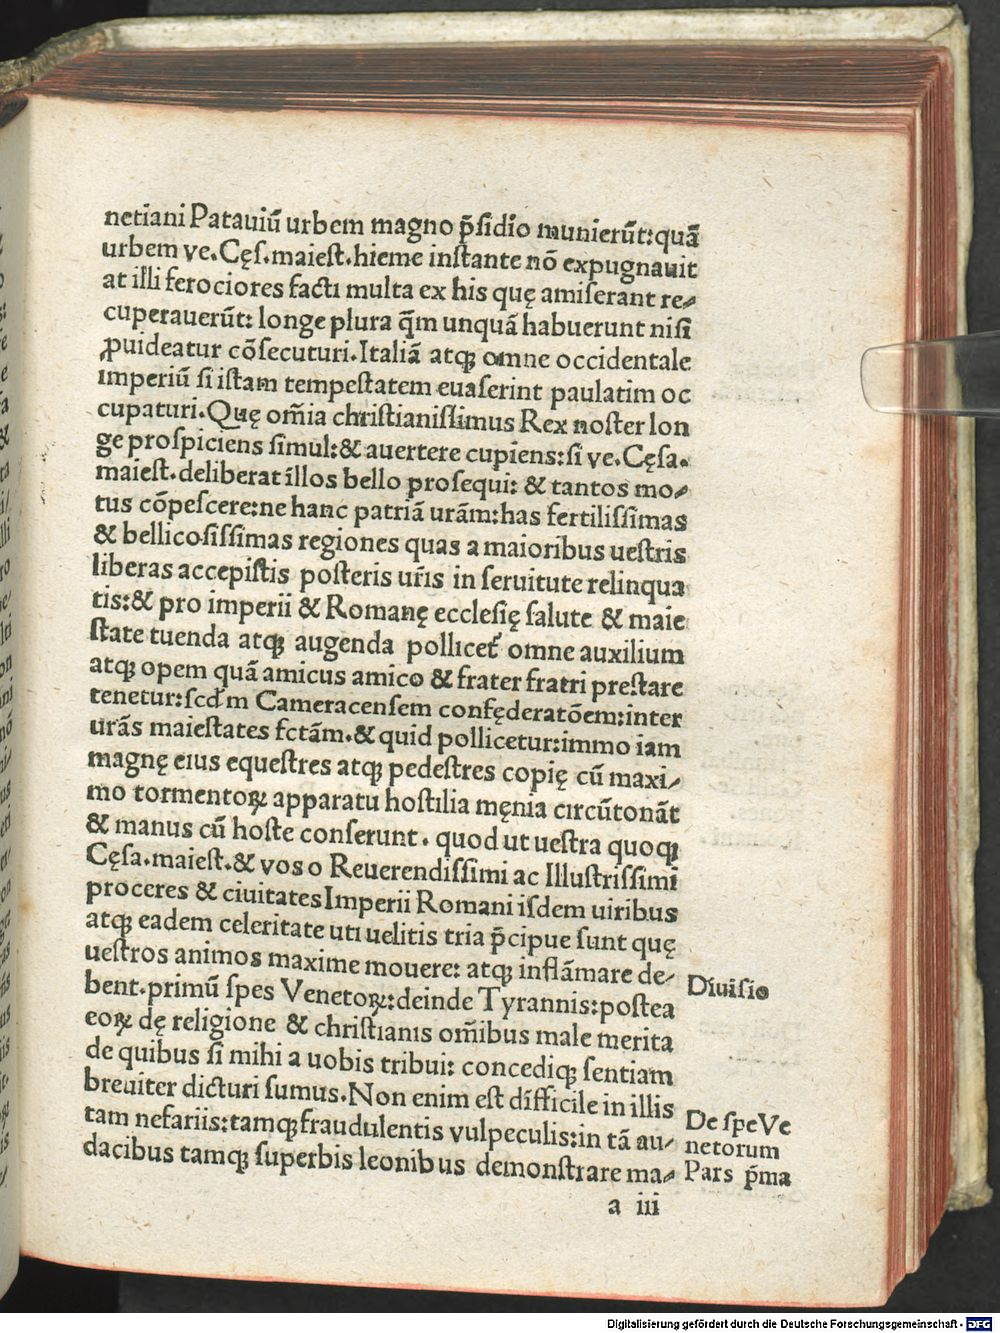 netiani Patauiū urbem magno p̄sidio munierūt: quā
urbem ve. Cęs. maiest. hieme instante nō expugnauit
at illi ferociores facti multa ex his quę amiserant re⸗
cuperauerūt: longe plura q̄m unquā habuerunt nisi
ꝓuideatur cōsecuturi. Italiā atqꝫ omne occidentale
imperiū si istam tempestatem euaserint paulatim oc
cupaturi. Quę om̄ia christianissimus Rex noster lon
ge prospiciens simul: & auertere cupiens: si ve. Cęsa.
maiest. deliberat illos bello prosequi: & tantos mo⸗
tus cōpescere: ne hanc patriā urām: has fertilissimas
& bellicosissimas regiones quas a maioribus uestris
liberas accepistis posteris ur̄is in seruitute relinqua
tis: & pro imperii & Romanę ecclesię salute & maie
state tuenda atqꝫ augenda pollicet᷑ omne auxilium
atqꝫ opem quā amicus amico & frater fratri prestare
tenetur: scd̄m Cameracensem confęderatōem: inter
urās maiestates fctām. & quid pollicetur: immo iam
magnę eius equestres atqꝫ pedestres copię cū maxi⸗
mo tormentoꝝ apparatu hostilia męnia circūtonāt
& manus cū hoste conserunt. quod ut uestra quoqꝫ
Cęsa. maiest. & vos o Reuerendissimi ac Illustrissimi
proceres & ciuitates Imperii Romani isdem uiribus
atqꝫ eadem celeritate uti uelitis tria p̄cipue sunt quę
uestros animos maxime mouere: atqꝫ inflāmare de⸗
bent. primū spes Venetoꝝ: deinde Tyrannis: postea
eoꝝ dę religione & christianis om̄ibus male merita
de quibus si mihi a uobis tribui: concediqꝫ sentiam
breuiter dicturi sumus. Non enim est difficile in illis
tam nefariis: tamqꝫ fraudulentis vulpeculis: in tā au⸗
dacibus tamqꝫ superbis leonibus demonstrare ma⸗
a iii
Diuisio
De spe Ve
netorum
Pars p̄ma
Digitalisierung gefördert durch die Deutsche Forschungsgemeinschaft - DFG